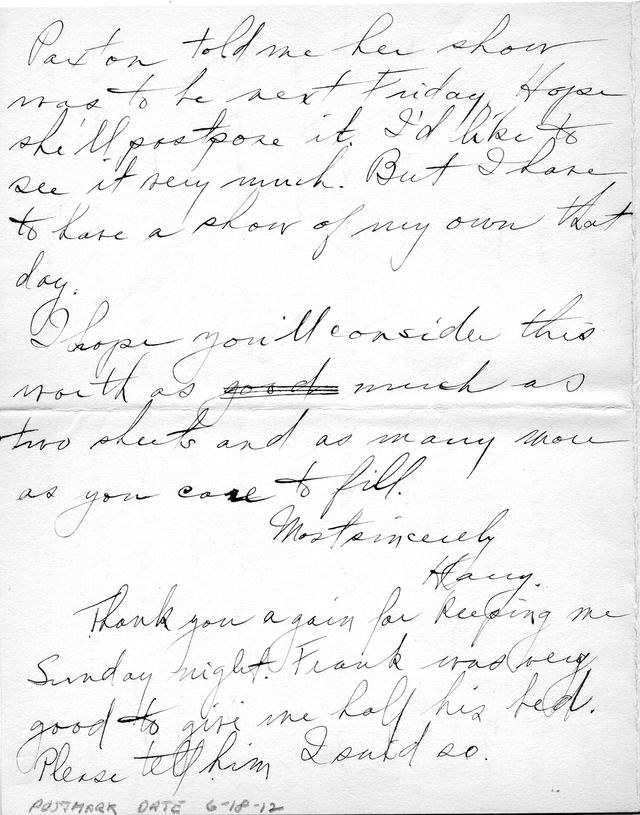 Paxton told me her show
was to be next Friday. Hope
she'll postpone it. I'd like to
see it very much. But I have
to have a show of my own that
day.
I hope you'll consider this
worth as good much as
two sheets and as many more
as you care to fill.
Most sincerely
Harry.
Thank you again for keeping me
Sunday night. Frank was very
good to give me half his bed.
Please tell him I said so.
POSTMARK DATE 6-18-12